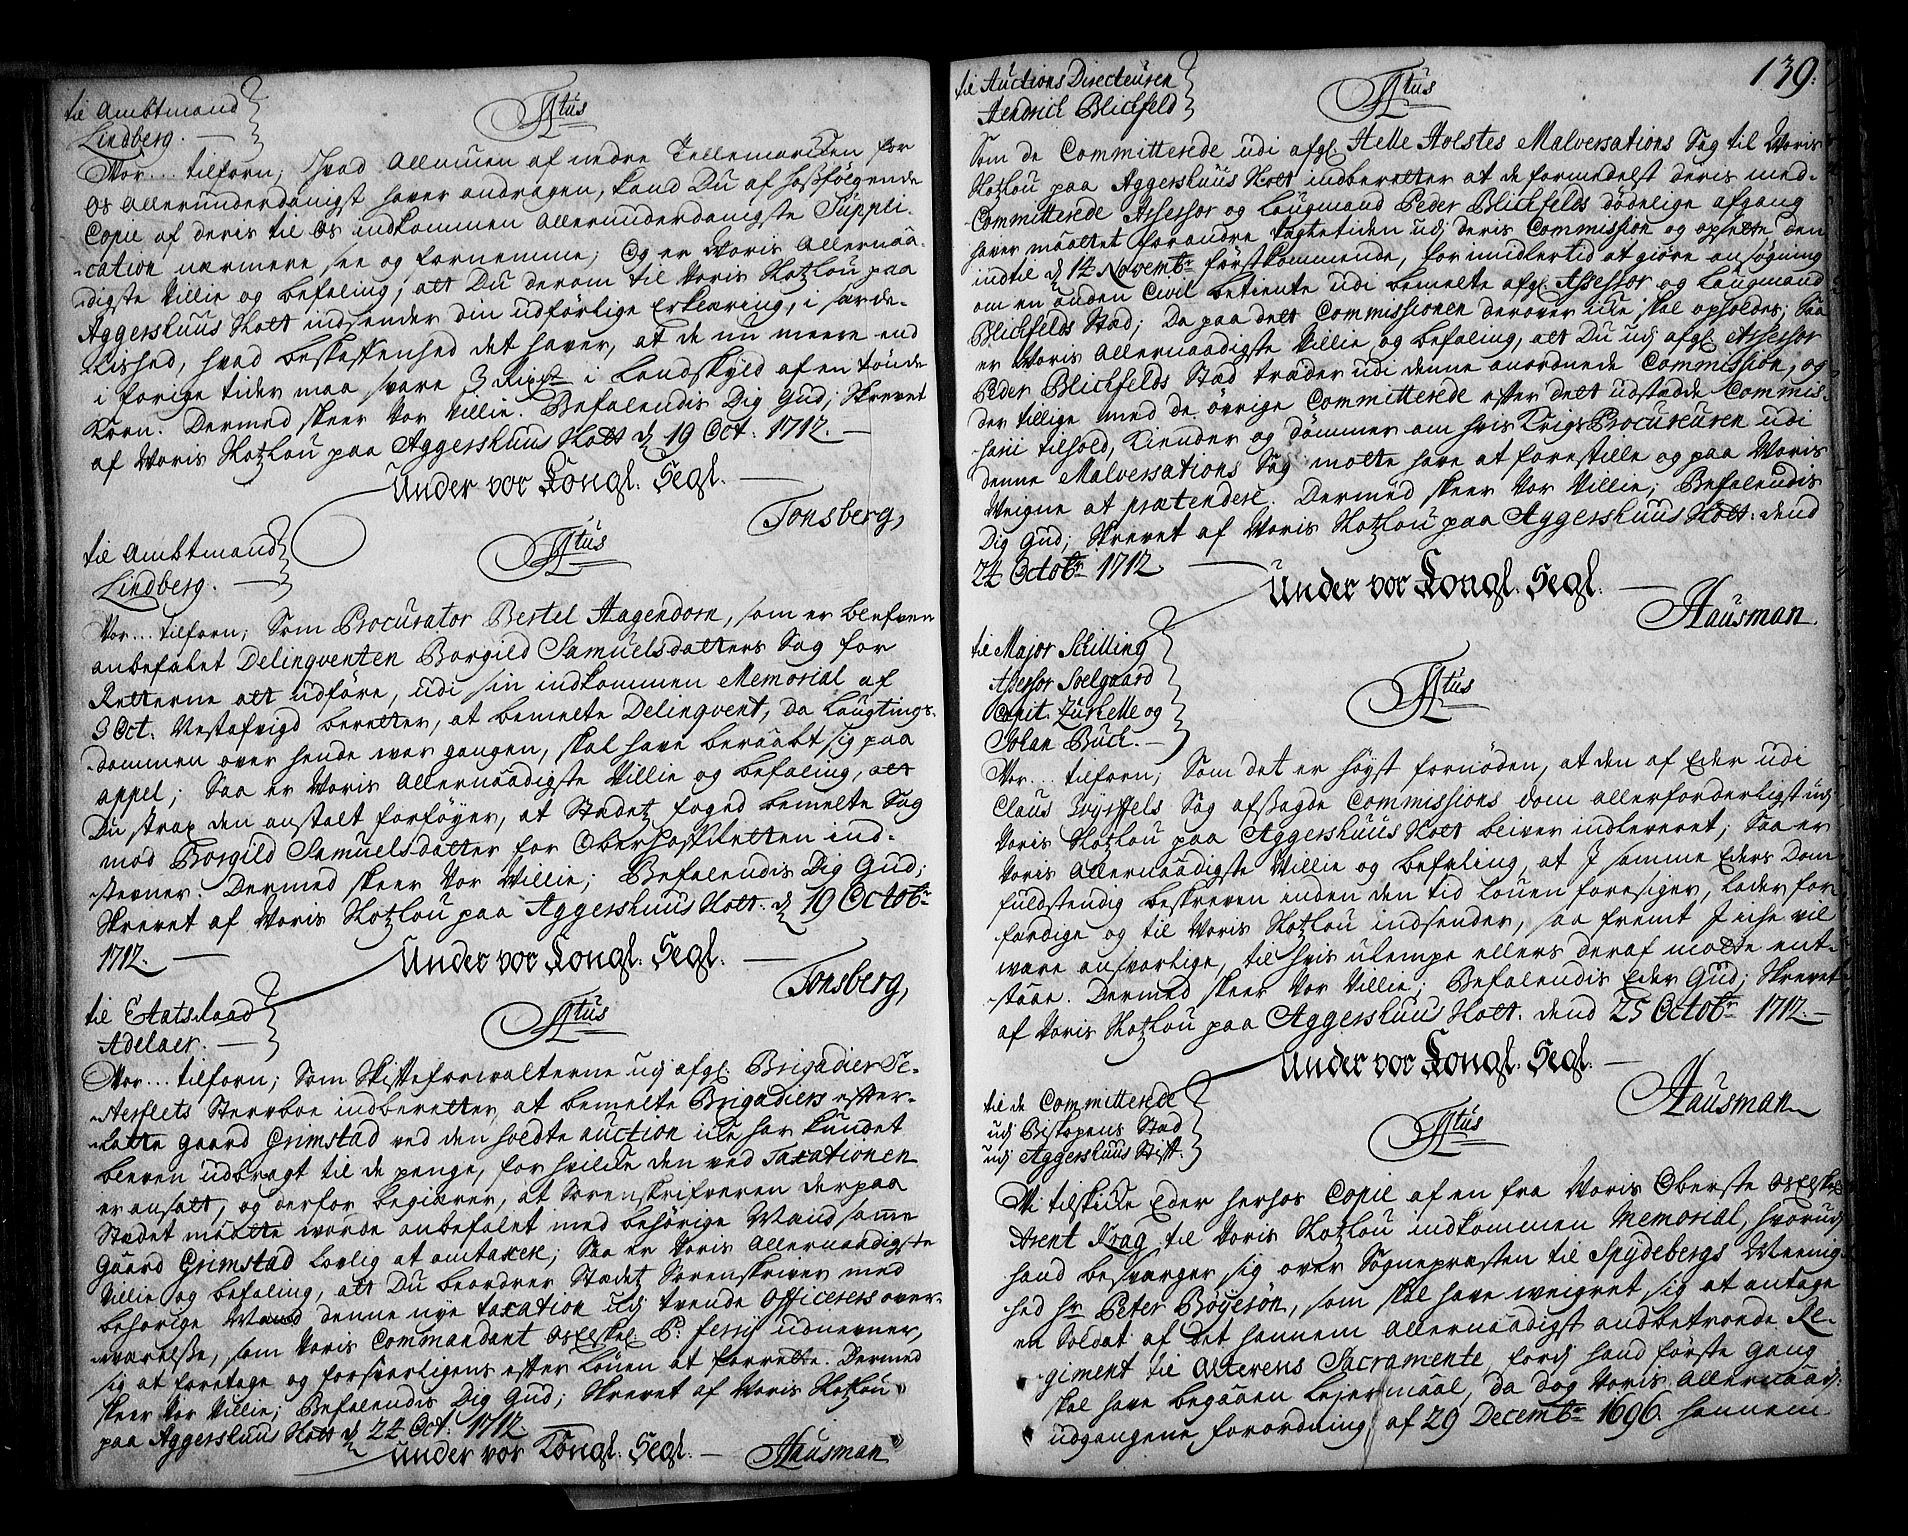 til Ambtmand
Lindberg.
Ftus
Vor... tilforn; Hvad Allmuen af nedre Tellemarcken for
Os allerunderdanigst haver andragen, kand Du af hosfølgende
Copie af deris til Os indkommen allerunderdanigste Suppli-
cation nærmere see og fornemme; Og er Voris Allernaa-
digste Villie og befaling, att Du derom til Voris Slotzlou paa
Aggershuus Slott indsender din udförlige Erklæring, i særde-
lished, hvad beskaffenhed det haver, at de nu meere end
i forige tider maa svare 3 Rixdr i Landskyld af en tønde
Korn. Dermed skeer Vor Villie. Befalendis Dig Gud; Skrevet
af Voris Slotzlou paa Aggershuus Slott d 19 Oct. 1712.
Under vor Kongl. Segl.
Tonsberg,
til Ambtmand
Lindberg.
Ftus
Vor... tilforn; Som Procurator Bertel Hagendorn, som er blefven
anbefalet Delinqventen Borgild Samuelsdatters Sag for
Retterne att udföre, udi sin indkommen Memorial af
3 Oct. Nestafvigd beretter, at bemelte Delinqvent, da Laugtings-
dommen over hende war gangen, skal have beraabt sig paa
appel; Saa er Voris Allernaadigste Villie og befaling, att
Du strax den anstalt forföyer, at Stædetz foged bemelte Sag
mod Borgild Samuelsdatter for Oberhofftretten ind-
stevner. Dermed skeer Vor Villie; Befalendis Dig Gud;
Skrevet af Voris Slotzlou paa Aggershuus Slott. d 19 Octobr
1712.
Under vor Kongl. Segl.
Tonsberg,
til Etatsraad
Adelaer.
Ftus
Vor... tilforn; Som Skifteforwalterne udj afgl. Brigadier
Sterboe indberetter, at bemelte Brigadiers effter-
latte gaard Grimstad ved den holdte auction icke har kundet
bleven udbragt til de penge, for hvilcke den ved Taxationen
er ansatt, og derfor begiærer, at Sorenskrifveren derpaa
Stædet maatte worde anbefalet med behörige Mænd samme
Gaard Grimstad Lovlig at omtaxere; Saa er Voris Allernaadigste
Villie og befaling, att Du beordrer Stædetz Sorenskriver med
behörige Mænd denne nye taxation udj tvende Officerers over-
værelse, som Voris Commandant udnevner,
sig at foretage og forsvarligens efter Louen at forrette. Dermed
skeer Vor Villie; Befalendis Dig Gud; Skrevet af Voris Slotzlou
paa Aggershuus Slott d 22 Oct. 1712
under vor Kongl. Segl.
Hausman
139.
til Auctions Directeuren
Hendrich Blichfeld
Ftus
Som de Committerede udi afgl. Helle Holstes Malversations Sag til Voris
Slotzlou paa Aggershuus Slott indberetter at de formedelst deris med-
Committerede Assessor og Laugmand Peder Blichfelds dödelige afgang
haver maattet forandre tægtetiden udj deris Commission og opsette den
indtil d 14 Novembr förstkommende, for imidlertid at giöre ansögning
om en anden Civil betiente udi bemelte afgl Assessor og Laugmand
Blichfelds Stæd; Da paa dett Commissionen derover icke skal opholdes; Saa
er Voris Allernaadigste Villie og befaling, att Du udj afgl Assessor
Peder Blichfelds Stæd træder udi denne anordnede Commission, og
der tillige med de övrige Committerede effter dett udstædde Commis-
sorii tilhold, kiender og dömmer om hvis Krigs Procureuren udi
denne Malversations Sag motte have at forestille og paa Voris
Weigne at prætendere. Dermed skeer Vor Villie; Befalendis
Dig Gud; Skrevet af Voris Slotzlou paa Aggershuus Slott. dend
22 Octobr 1712.
Under vor Kongl. Segl.
Hausman.
til Major Schilling
Assessor Soelgaard
Capit. og
Johan Buch.
Ftus
Vor... tilforn; Som det er höyst fornöden, at den af Eder udi
Claus Sag afsagde Commissions dom allerforderligst udj
Voris Slotzlou paa Aggershuus Slott bliver indleveret; Saa er
Voris Allernaadigste Villie og befaling, at I samme Eders Dom
fuldstendig beskreven inden den tid Louen foresiger, lader for-
færdige og til Voris Slotzlou indsender, saa fremt I icke vil
ware ansvarlige, til hvis ulempe ellers deraf motte ent-
staae. Dermed skeer Vor Villie; Befalendis Eder Gud; Skrevet
af Voris Slotzlou paa Aggershuus Slott. dend 25 Octobr 1712.
Under vor Kongl. Segl.
Hausman
til de Committerede
udj Bispens Stæd
udj Aggershuus Stift.
Ftus
Vi tilskicke Eder herhos Copie af en fra Voris Oberste
Arent Krag til Voris Slotzlou indkommen Memorial, hvorudj
hand besværger sig over Sognepræsten til Spydebergs Meenig-
hed hr Peter Böyesön, som skal have weigret sig at antage
en Soldat af det hannem Allernaadigst andbetroede Re-
giment til Alterens Sacramente, fordj hand förste Gang
skal have begaaen Lejermaal, da dog Voris Allernaad:
udgangene forordning af 29 Decembr 1696. hannem